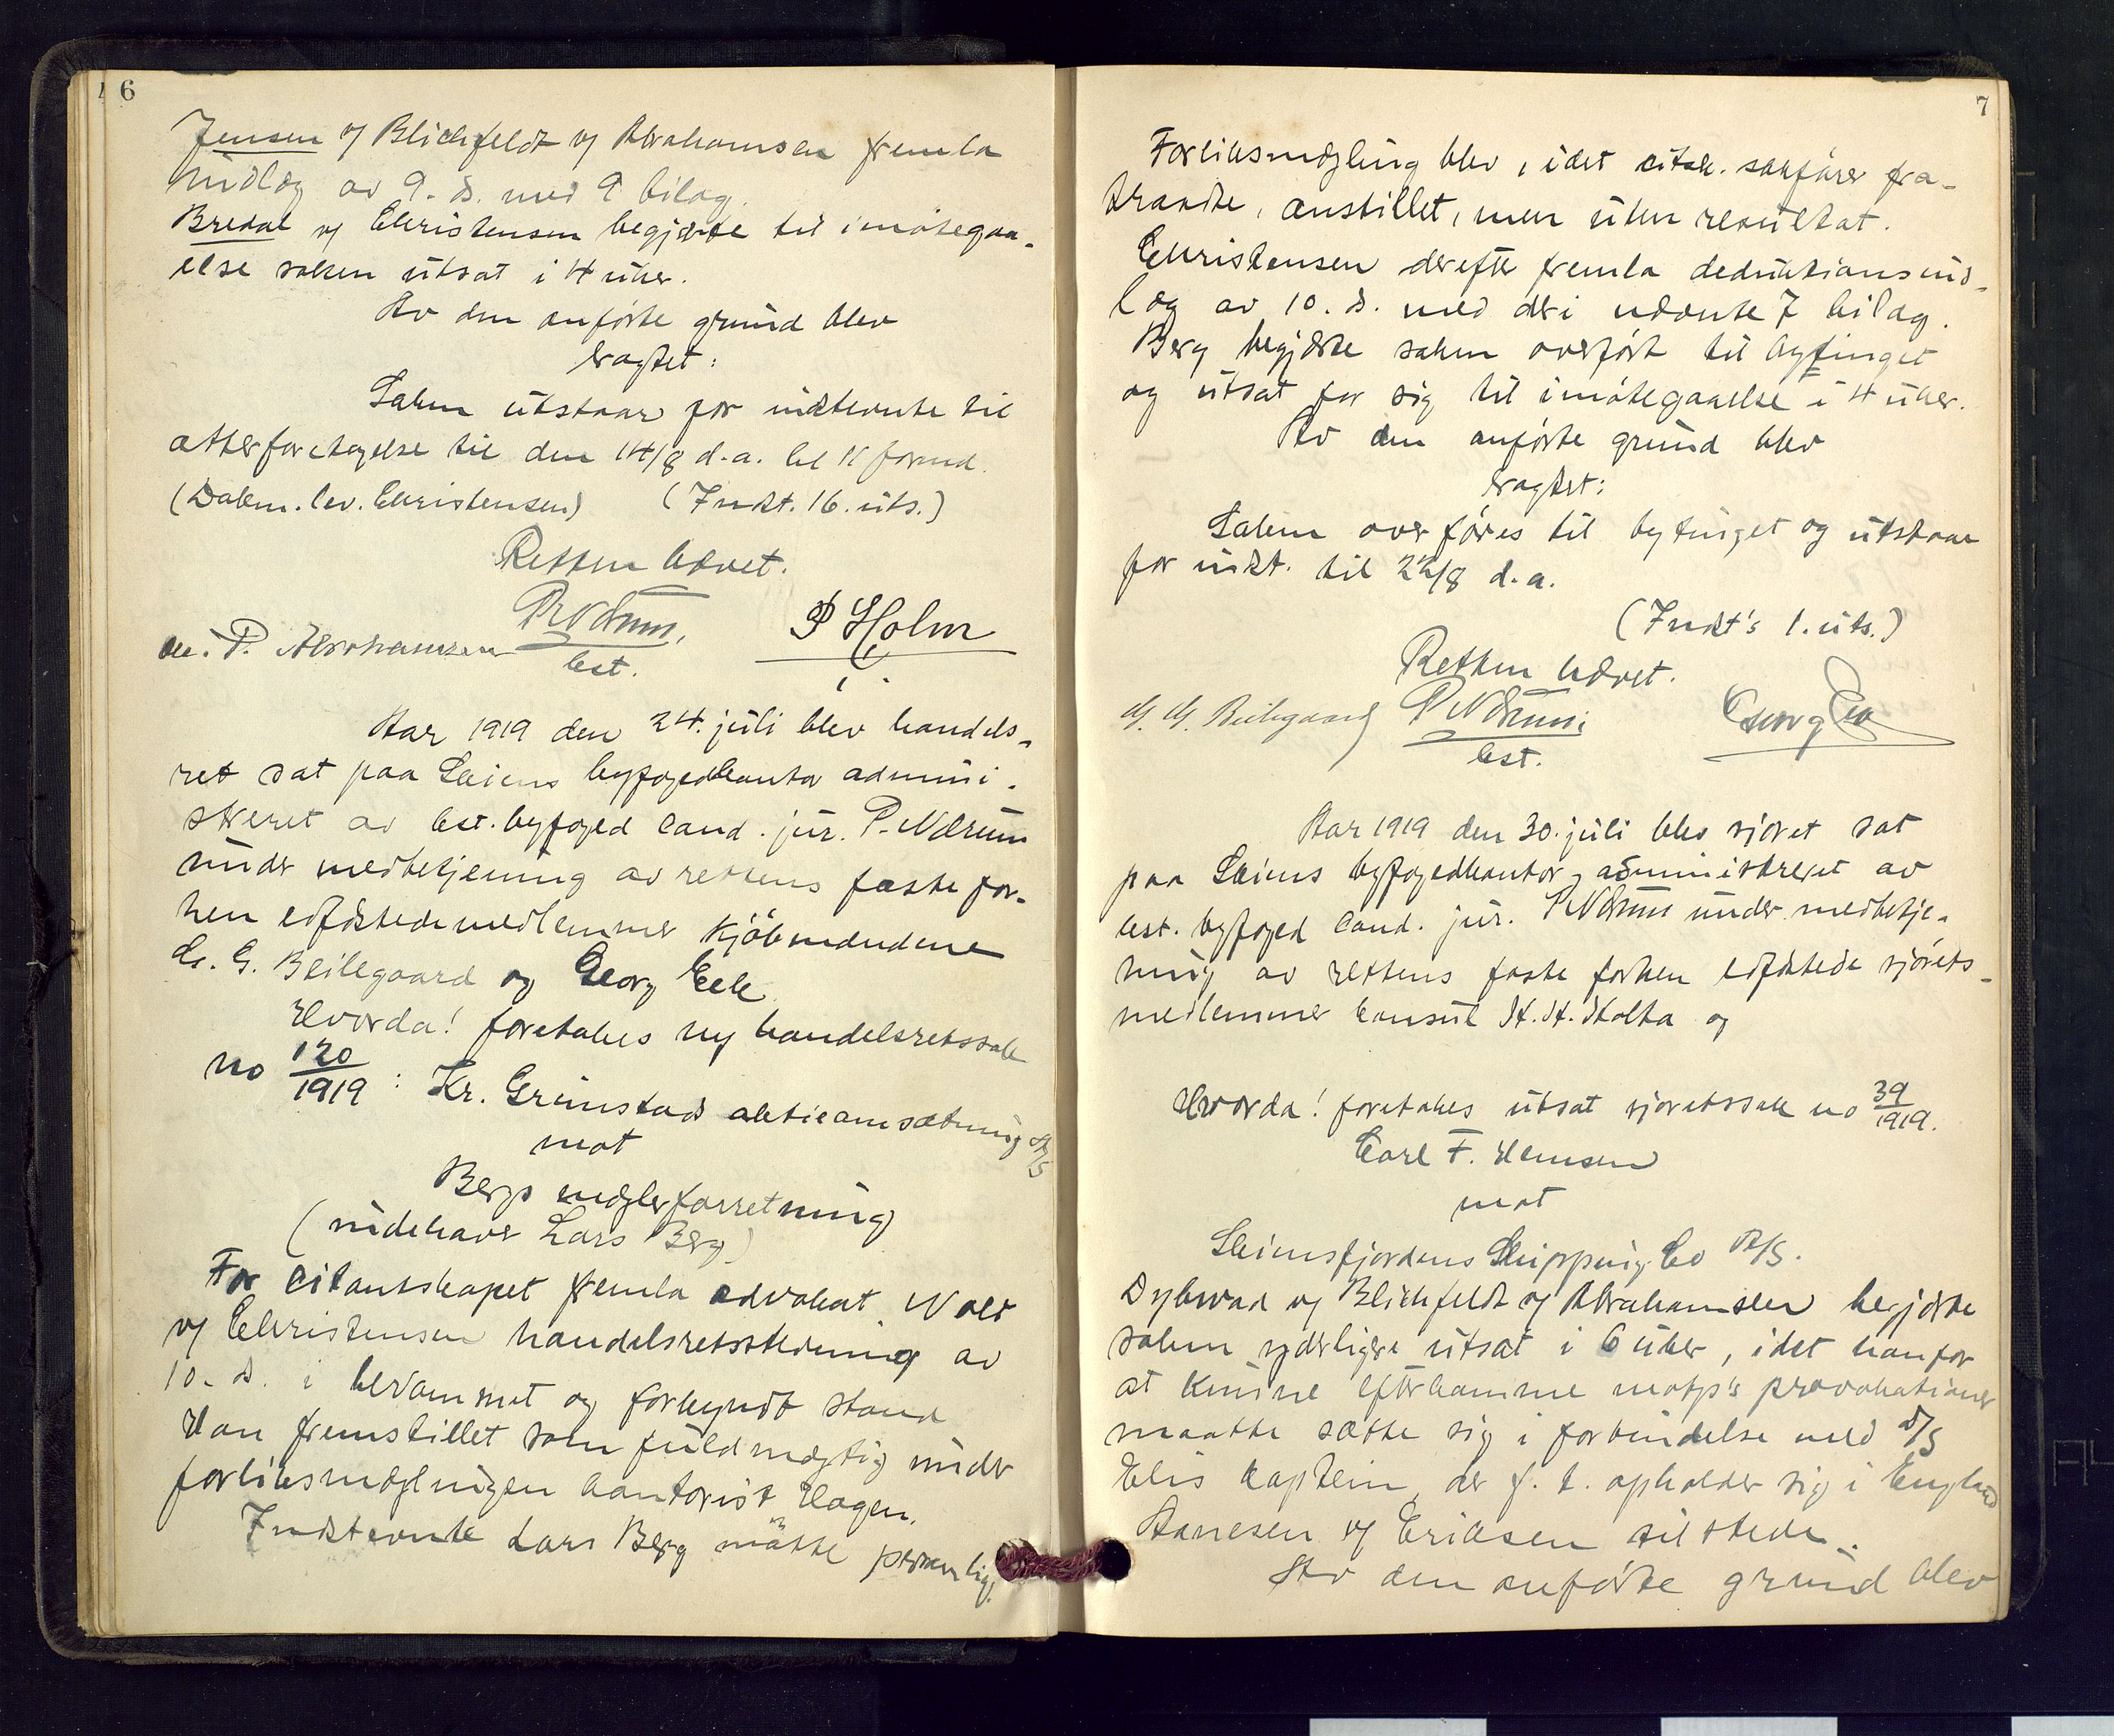 6
Jensen v/ Blichfeldt v/ Abrahamsen fremla
indlæg av 9. ds. med 9 bilag.
Bredal v/ Christensen begjærte til imøtegaa-
else saken utsat i 4 uker.
Av den anførte grund blev
bragtet:
Saken utstaar for indstevnte til
atter foretagelse til den 14/8 d.a. kl 11 formd.
(Dokm. lev. Christensen) (Indst. 16. uts.)
Retten hævet.
P. Abrahamsen P Ndrum P Holm
bst.
Aar 1919 den 24. juli blev handels-
ret sat paa Skiens byfogedkontor admini-
streret av bst. byfoged cand. jur. P. Ndrum
under medbetjening av rettens faste for-
hen edfæstede medlemmer kjøbmændene
G. G. Beilegaard og Georg Eek
Hvorda! foretakes ny handelsretssak
no 120/1919 : Kr. Grimstads aktieomsætning A/S
mot
Bergs mæglerforretning
(indehaver Lars Berg)
For citantskapet fremla advokat Wold
v/ Christensen handelsretsstevning av
10. ds. i berammet og forkyndt stand
Han fremstillet som fuldmægtig under
forliksmæglingen kontorist Hagen.
Indstevnte Lars Berg møtte personlig.
7
Forliksmægling blev, idet citsk. sakfører fra-
traadte, anstillet, men uten resultat.
Christensen derefter fremla deduktionsind-
læg av 10. ds. med deri nævnte 7 bilag.
Berg begjærte saken overført til bytinget
og utsat for sig til imøtegaaelse i 4 uker.
Av den anførte grund blev
bragtet:
Saken overføres til bytinget og utstaar
for indst. til 22/8 d.a.
(Indst's 1. uts.)
Retten hævet.
G. G. Beilegaard P Ndrum Georg Eek
bst.
Aar 1919 den 30. juli blev sjøret sat
paa Skiens byfogedkontor, administreret av
bst. byfoged cand. jur. P Ndrum under medbetje-
ning av rettens faste forhen edfæstede sjørets-
medlemmer konsul H. H. Holta og
Hvorda! foretakes utsat sjøretssak no 39/1919.
Carl F. Hemsen
mot
Skiensfjordens Shipping Co A/S.
Dybwad v/ Blichfeldt v/ Abrahamsen begjærte
saken yderligere utsat i 6 uker, idet han for
at kunne efterkomme motp's provokationer
maatte sætte sig i forbindelse med D/S
Elis kaptein, der f. t. opholder sig i England
Aanesen v/ Eriksen tilstede.
Av den anførte grund blev